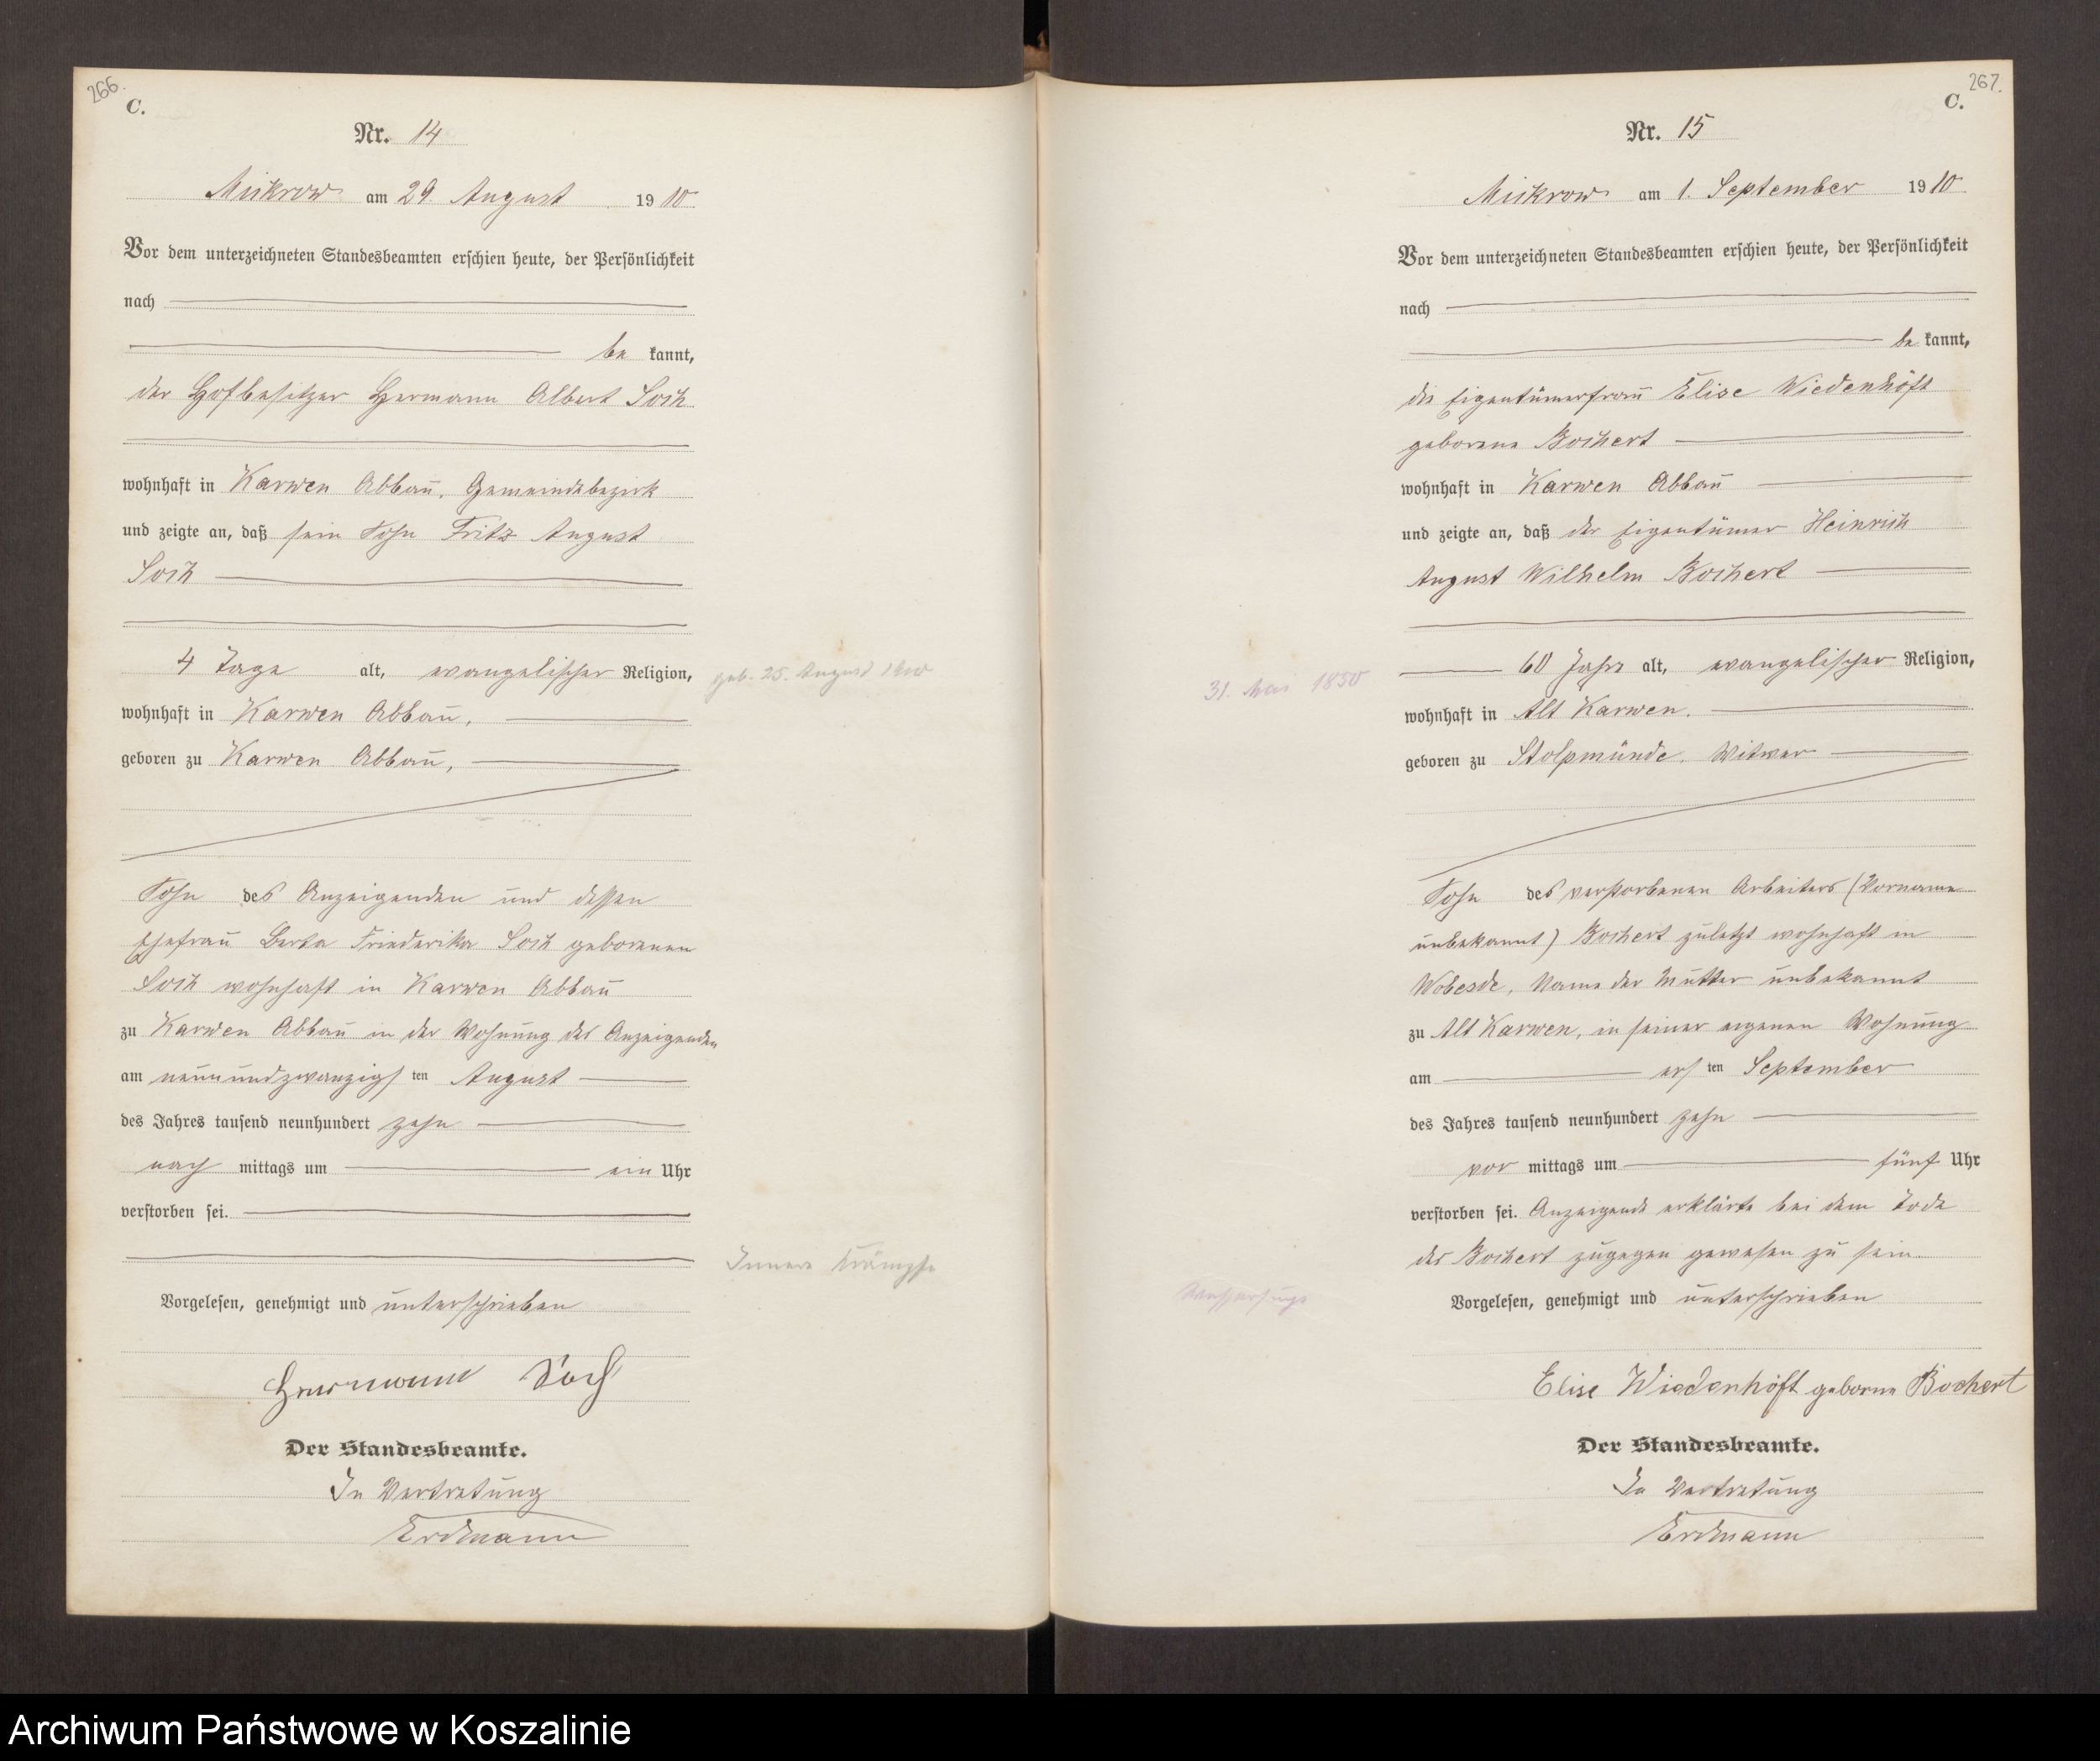 266.
C.
Nr. 14
Mickrow am 29. August 1910
Vor dem unterzeichneten Standesbeamten erschien heute, der Persönlichkeit
nach
be kannt,
der Hofbesitzer Hermann Albert Soch
wohnhaft in Karwen Abbau, Gemeindebezirk
und zeigte an, daß sein Sohn Fritz August
Soch
4 Tage alt, evangelischer Religion,
geb. 25. August 1910
wohnhaft in Karwen Abbau,
geboren zu Karwen Abbau,
Sohn des Anzeigenden und dessen
Ehefrau Berta Friederike Soch geborenen
Soch wohnhaft in Karwen Abbau
zu Karwen Abbau in der Wohnung des Anzeigenden
am neunundzwanzigsten August
des Jahres tausend neunhundert zehn
nach mittags um ein Uhr
verstorben sei.
Innere Krämpfe
Vorgelesen, genehmigt und unterschrieben
Hermann Soch
Der Standesbeamte.
In Vertretung
Erdmann
267.
C.
Nr. 15
Mickrow am 1. September 1910
Vor dem unterzeichneten Standesbeamten erschien heute, der Persönlichkeit
nach
be kannt,
die Eigentümerfrau Elise Wiedenhöft
geborene Bochert
wohnhaft in Karwen Abbau
und zeigte an, daß der Eigentümer Heinrich
August Wilhelm Bochert
60 Jahre alt, evangelischer Religion,
31. Mai 1850
wohnhaft in Alt Karwen.
geboren zu Stolpmünde, Witwer
Sohn des verstorbenen Arbeiters (Vorname
unbekannt) Bochert zuletzt wohnhaft in
Wobesde, Name der Mutter unbekannt
zu Alt Karwen, in seiner eigenen Wohnung
am ersten September
des Jahres tausend neunhundert zehn
vor mittags um fünf Uhr
verstorben sei. Anzeigende erklärte bei dem Tode
des Bochert zugegen gewesen zu sein
Wassersucht
Vorgelesen, genehmigt und unterschrieben
Elise Wiedenhöft geborne Bochert
Der Standesbeamte.
In Vertretung
Erdmann
Archiwum Państwowe w Koszalinie